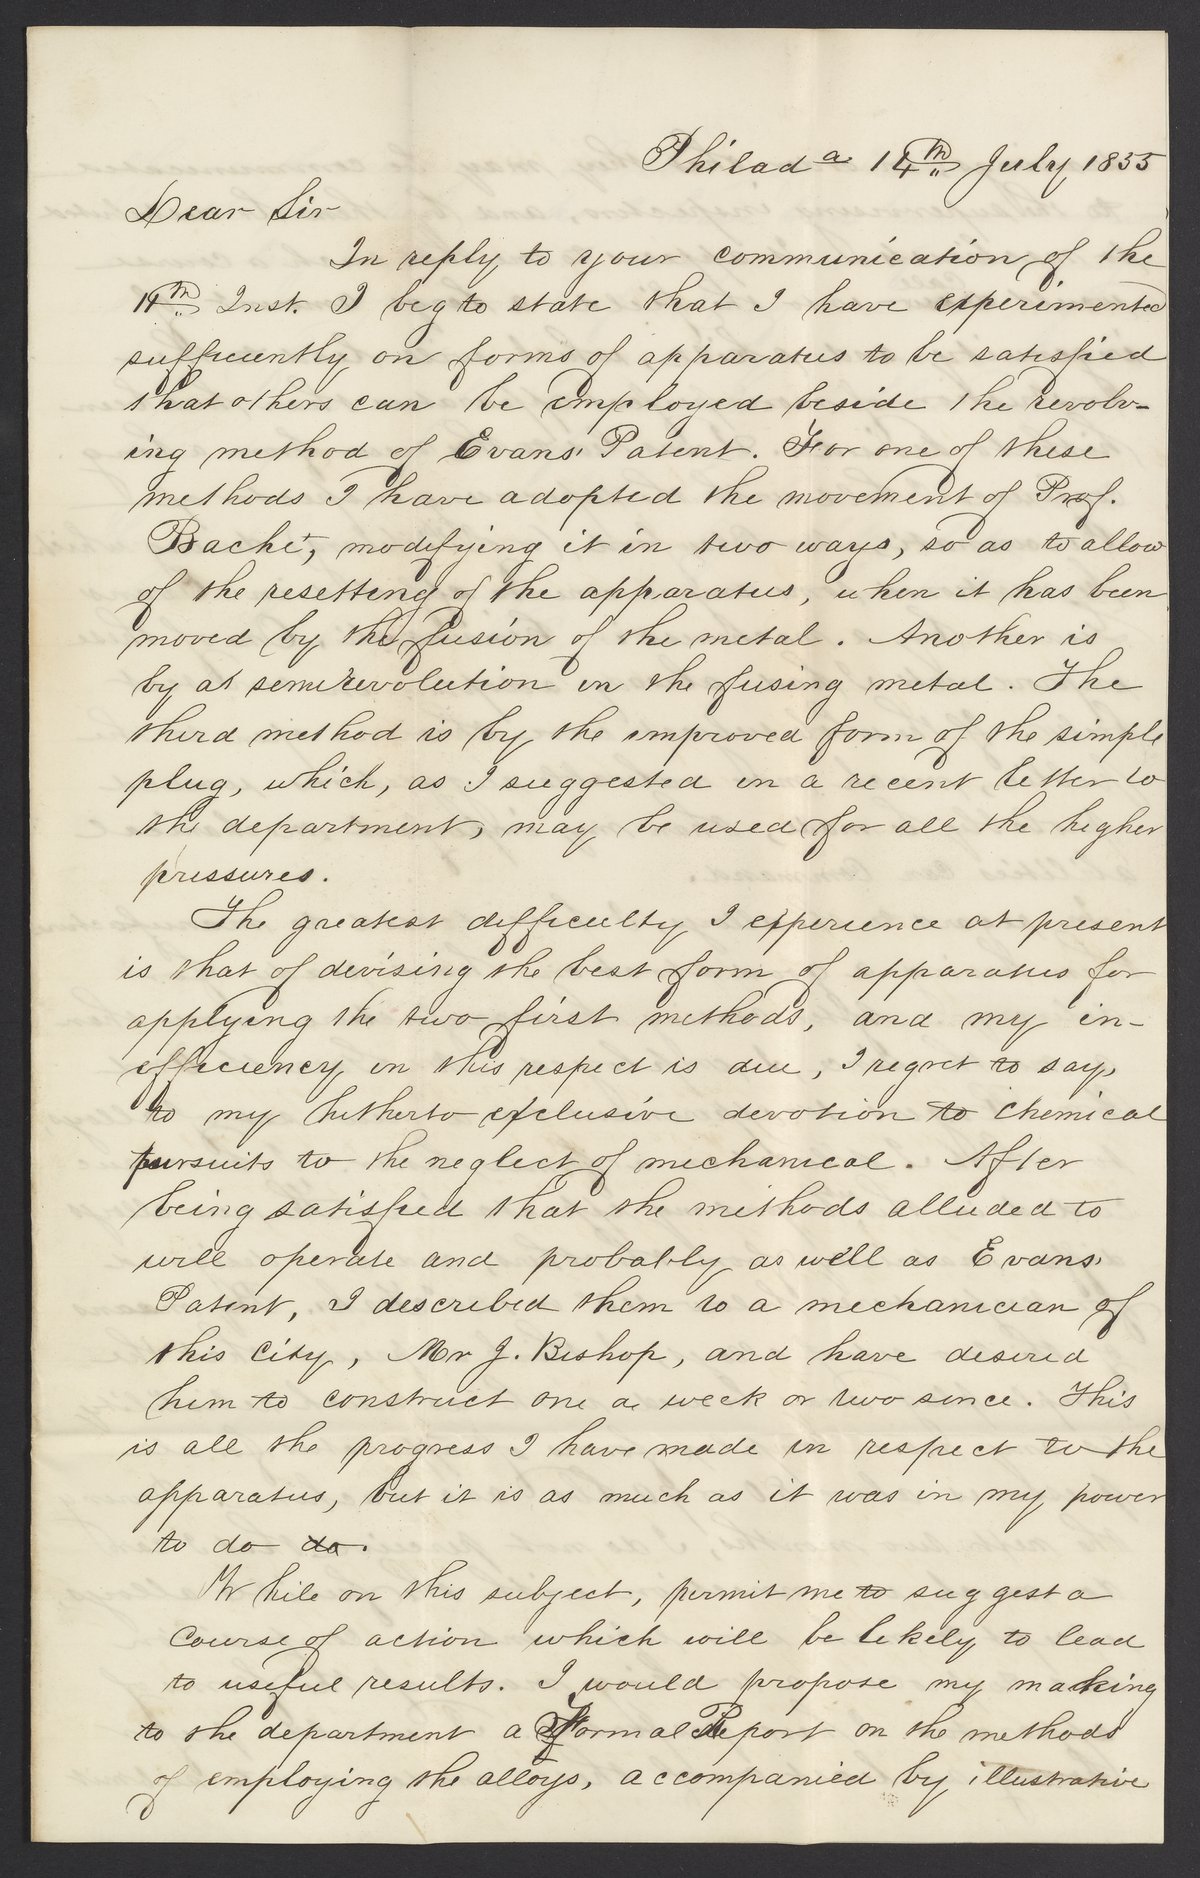 Philada 14th July 1855
Dear Sir
In reply to your communication of the
11th Inst. I beg to state that I have experimented
sufficiently on forms of apparatus to be satisfied
that others can be employed beside the revolv-
ing method of Evans' Patent. For one of these
methods I have adopted the movement of Prof.
Bache, modifying it in two ways, so as to allow
of the resetting of the apparatus, when it has been
moved by the fusion of the metal. Another is
by at semirevolution in the fusing metal. The
third method is by the improved form of the simple
plug, which, as I suggested in a recent letter to
the department, may be used for all the higher
pressures.
The greatest difficulty I experience at present
is that of devising the best form of apparatus for
applying the two first methods, and my in-
efficiency in this respect is due, I regret to say,
to my hitherto exclusive devotion to chemical
pursuits to the neglect of mechanical. After
being satisfied that the methods alluded to
will operate and probably as well as Evans'
Patent, I described them to a mechanician of
this City, Mr J. Bishop, and have desired
him to construct one a week or two since. This
is all the progress I have made in respect to the
apparatus, but it is as much as it was in my power
to do do.
While on this subject, permit me to suggest a
course of action which will be likely to lead
to useful results. I would propose my making
to the department a Formal Report on the methods
of employing the alloys, accompanied by illustrative